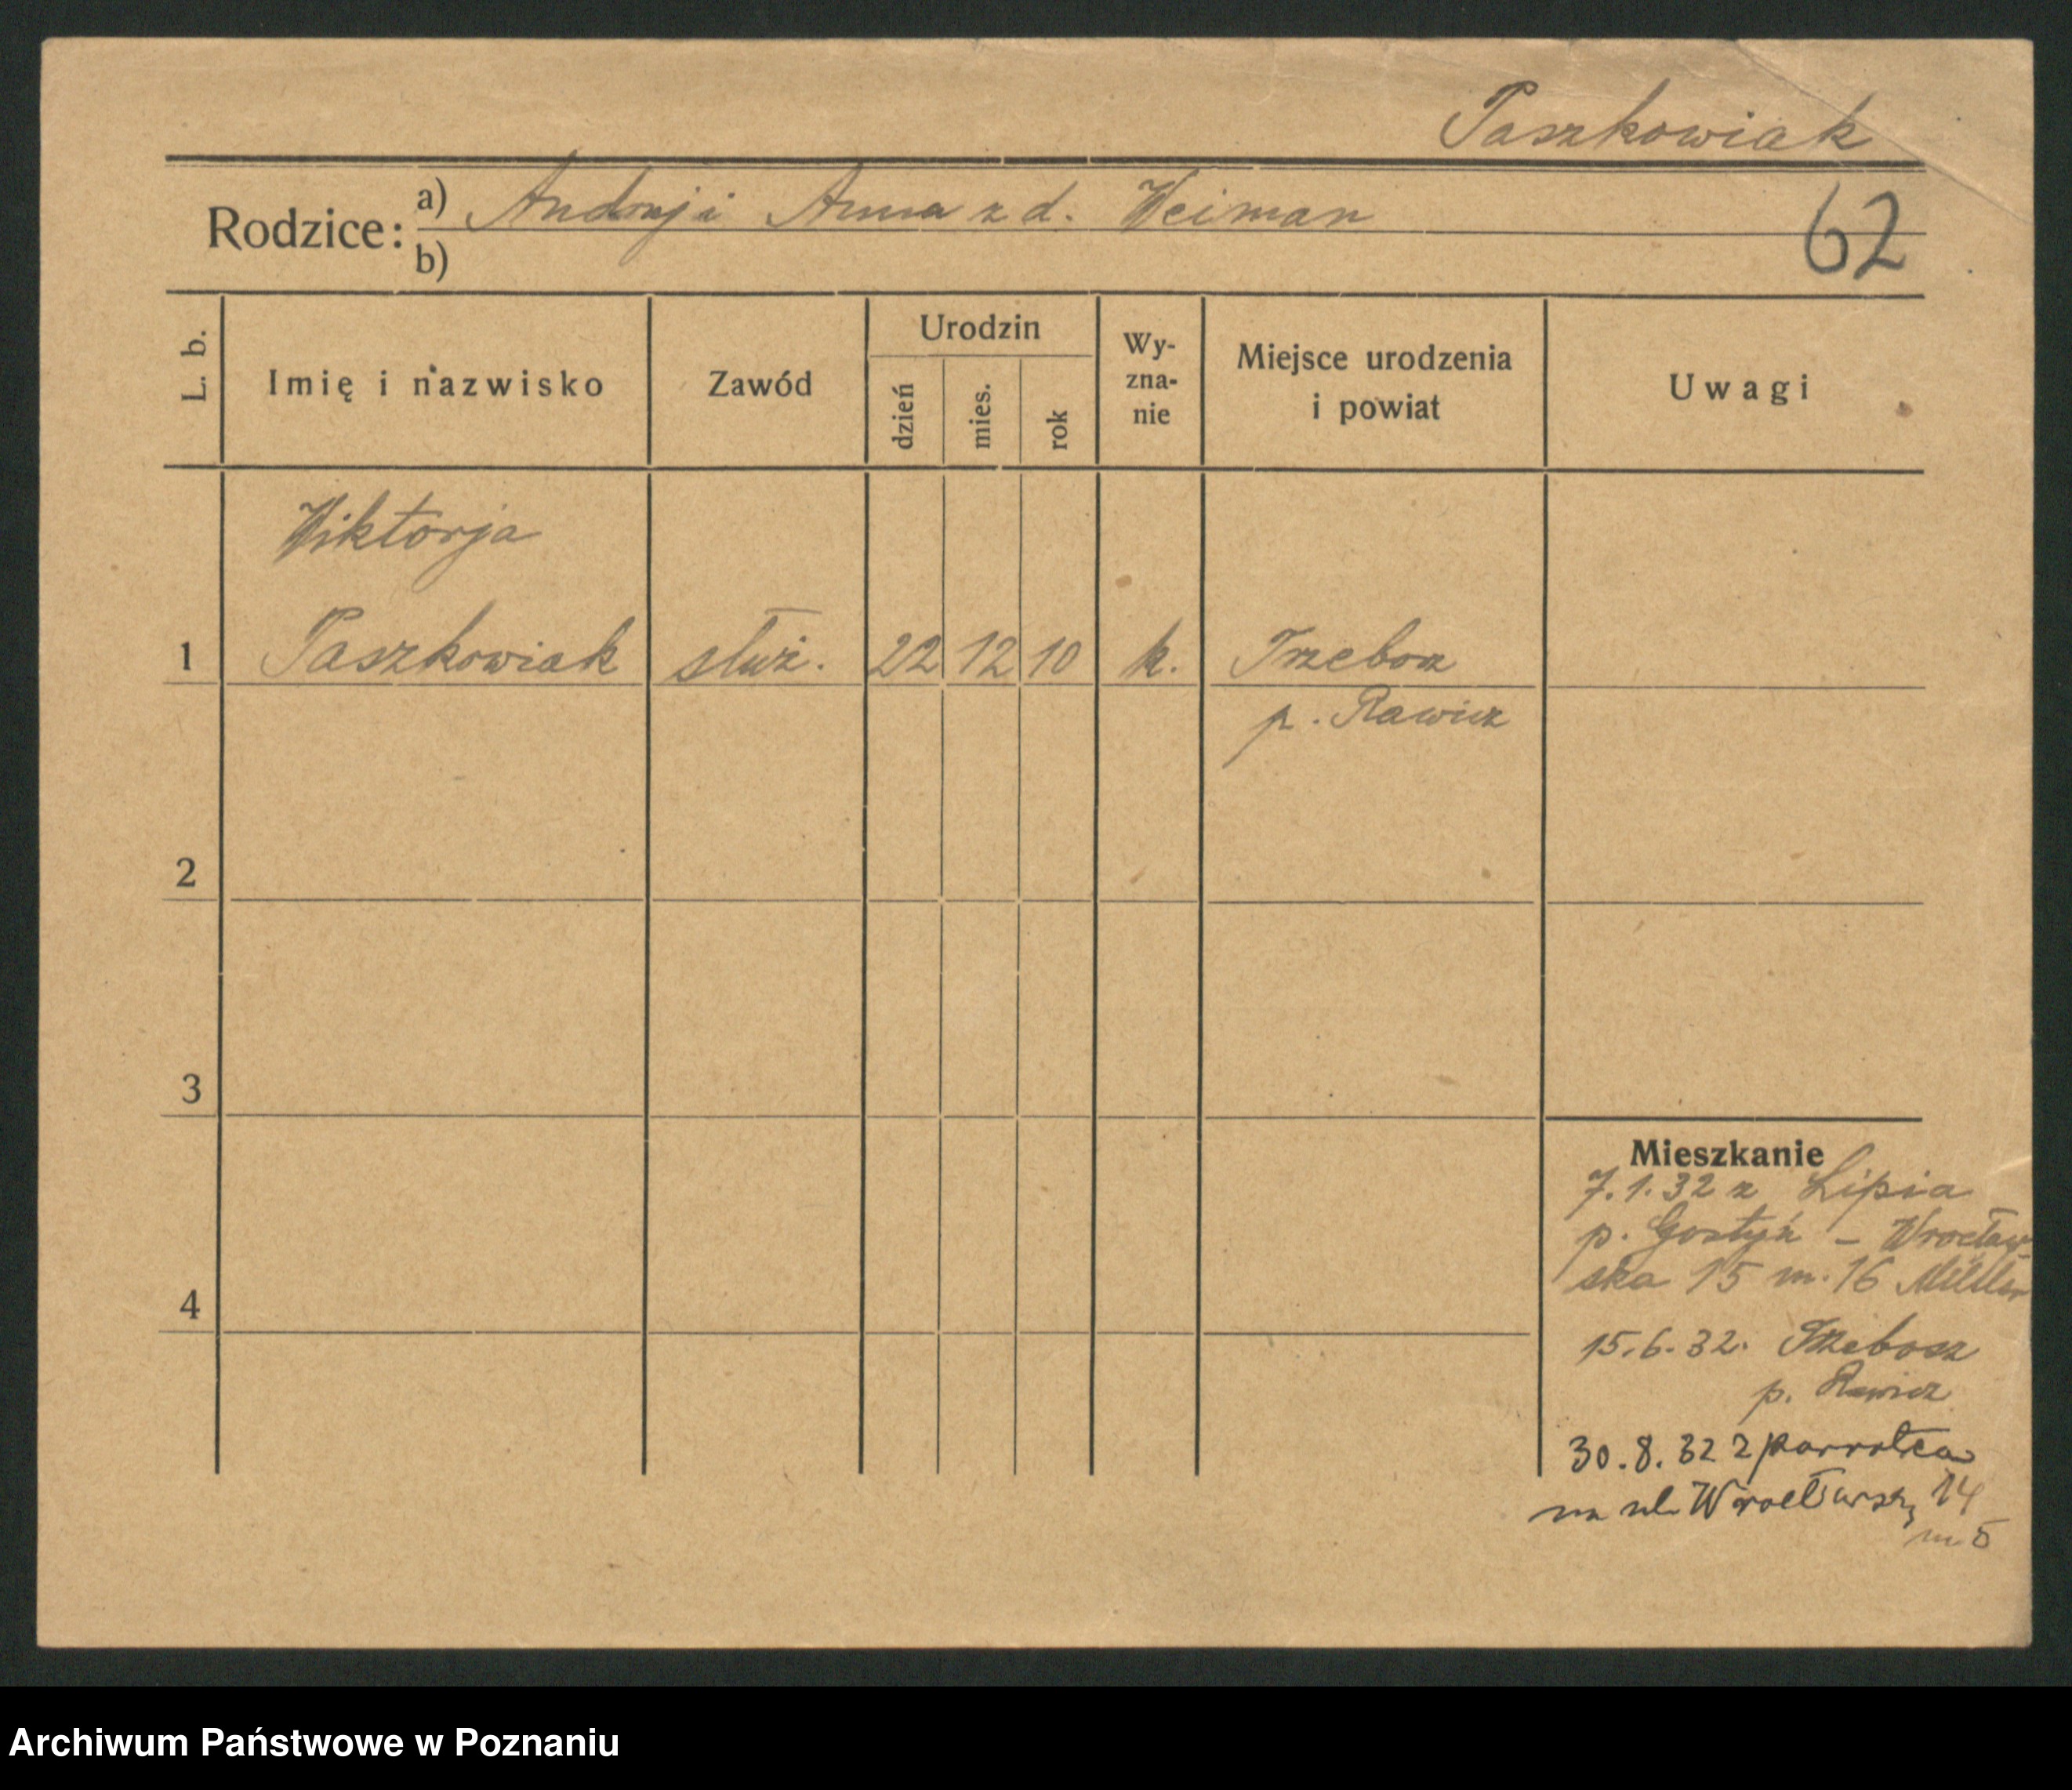 Paszkowiak
Rodzice: a) Andrzej i Anna z d. Weiman
b)
62
L. b.
Imię i nazwisko
Zawód
Urodzin
dzień
mies.
rok
Wy-
zna-
nie
Miejsce urodzenia
i powiat
Uwagi
Wiktorja
1 Paszkowiak służ. 22 12 10 k. Trzebosz
p. Rawicz
2
3
4
Mieszkanie
7.1.32 z Lipia
p. Gostyń – Wrocław-
ska 15 m. 16 Müller
15.6.32. Trzebosz
p. Rawicz
30.8.32 z
na ul. Wrocławską 14
m 5
Archiwum Państwowe w Poznaniu